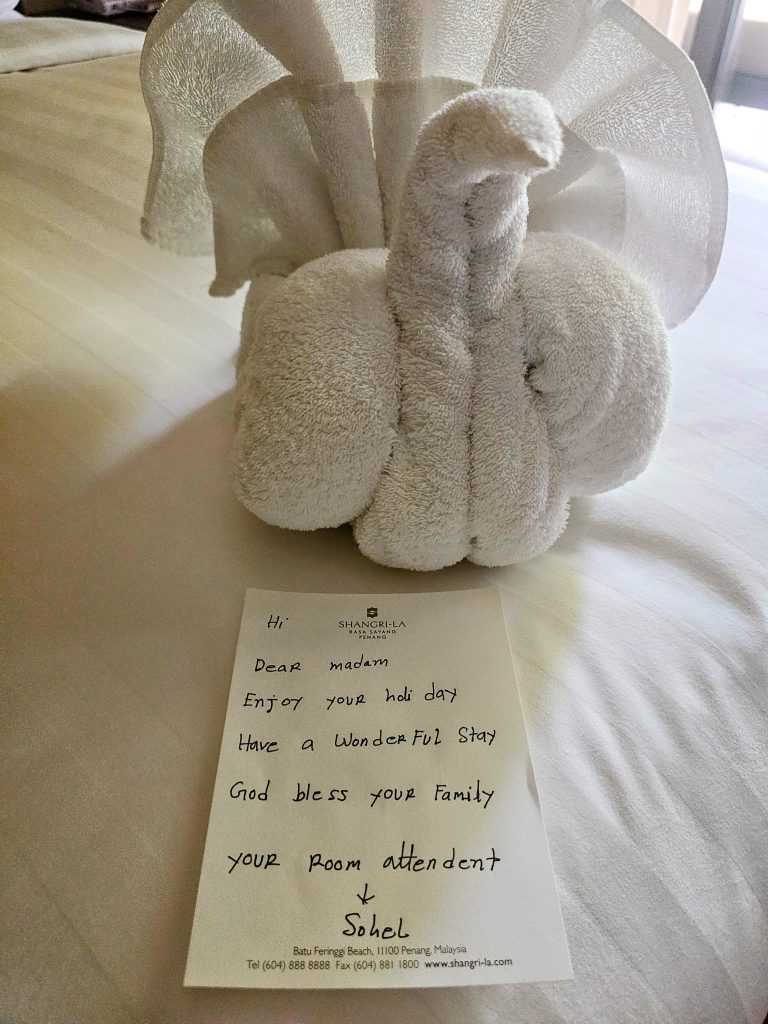 Hi
SHANGRI-LA
RASA SAYANG
PENANG
Dear madam
Enjoy your holi day
Have a Wonderful Stay
God bless your Family
your Room attendent
↓
Sohel
Batu Feringgi Beach, 11100 Penang, Malaysia
Tel (604) 888 8888 Fax (604) 881 1800 www.shangri-la.com